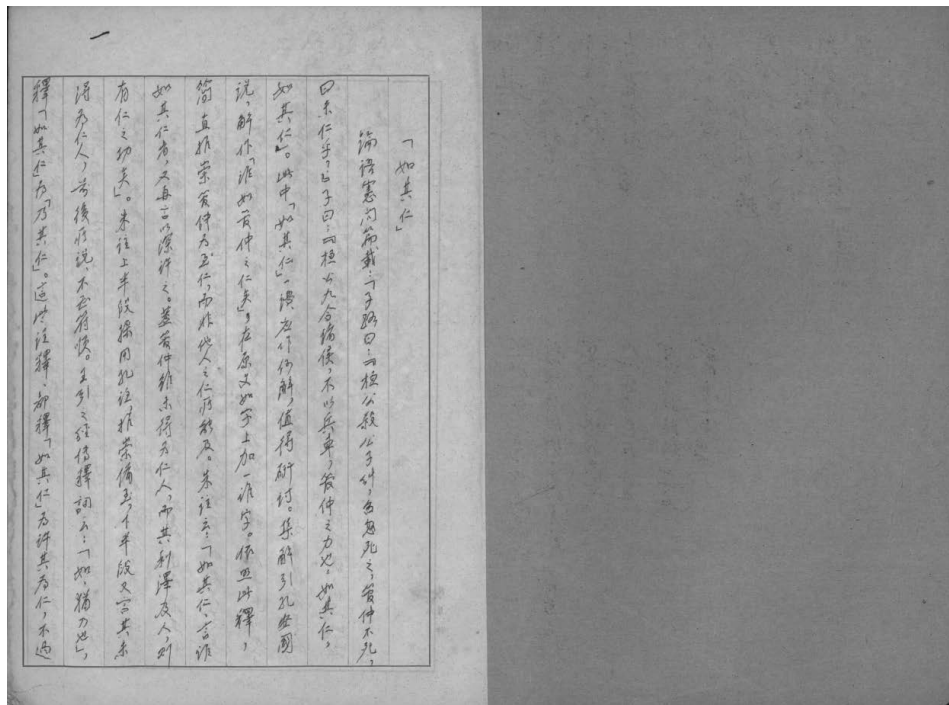 一
「如其仁」
論語憲問篇載:「子路曰:『桓公殺公子糾,召忽死之,管仲不死,
曰未仁乎,』子曰:『桓公九合諸侯,不以兵車,管仲之力也,如其仁,
如其仁』。此中「如其仁」一讚,應作何解,值得研討。集解引孔安國
說,解作「誰如管仲之仁矣」,在原文如字上加一誰字。依照此釋,
簡直推崇管仲為至仁,而非他人之仁所能及。朱注云:「如其仁,言誰
如其仁者,又再言以深許之。蓋管仲雖未得為仁人,而其利澤及人,則
有仁之功矣」。朱注上半段採用孔注,推崇備至,下半段又言其未
得為仁人,前後所說,不甚符順。王引之經傳釋詞云:「如,猶乃也」,
釋「如其仁」為「乃其仁」。這些注釋,都釋「如其仁」為許其為仁,不過